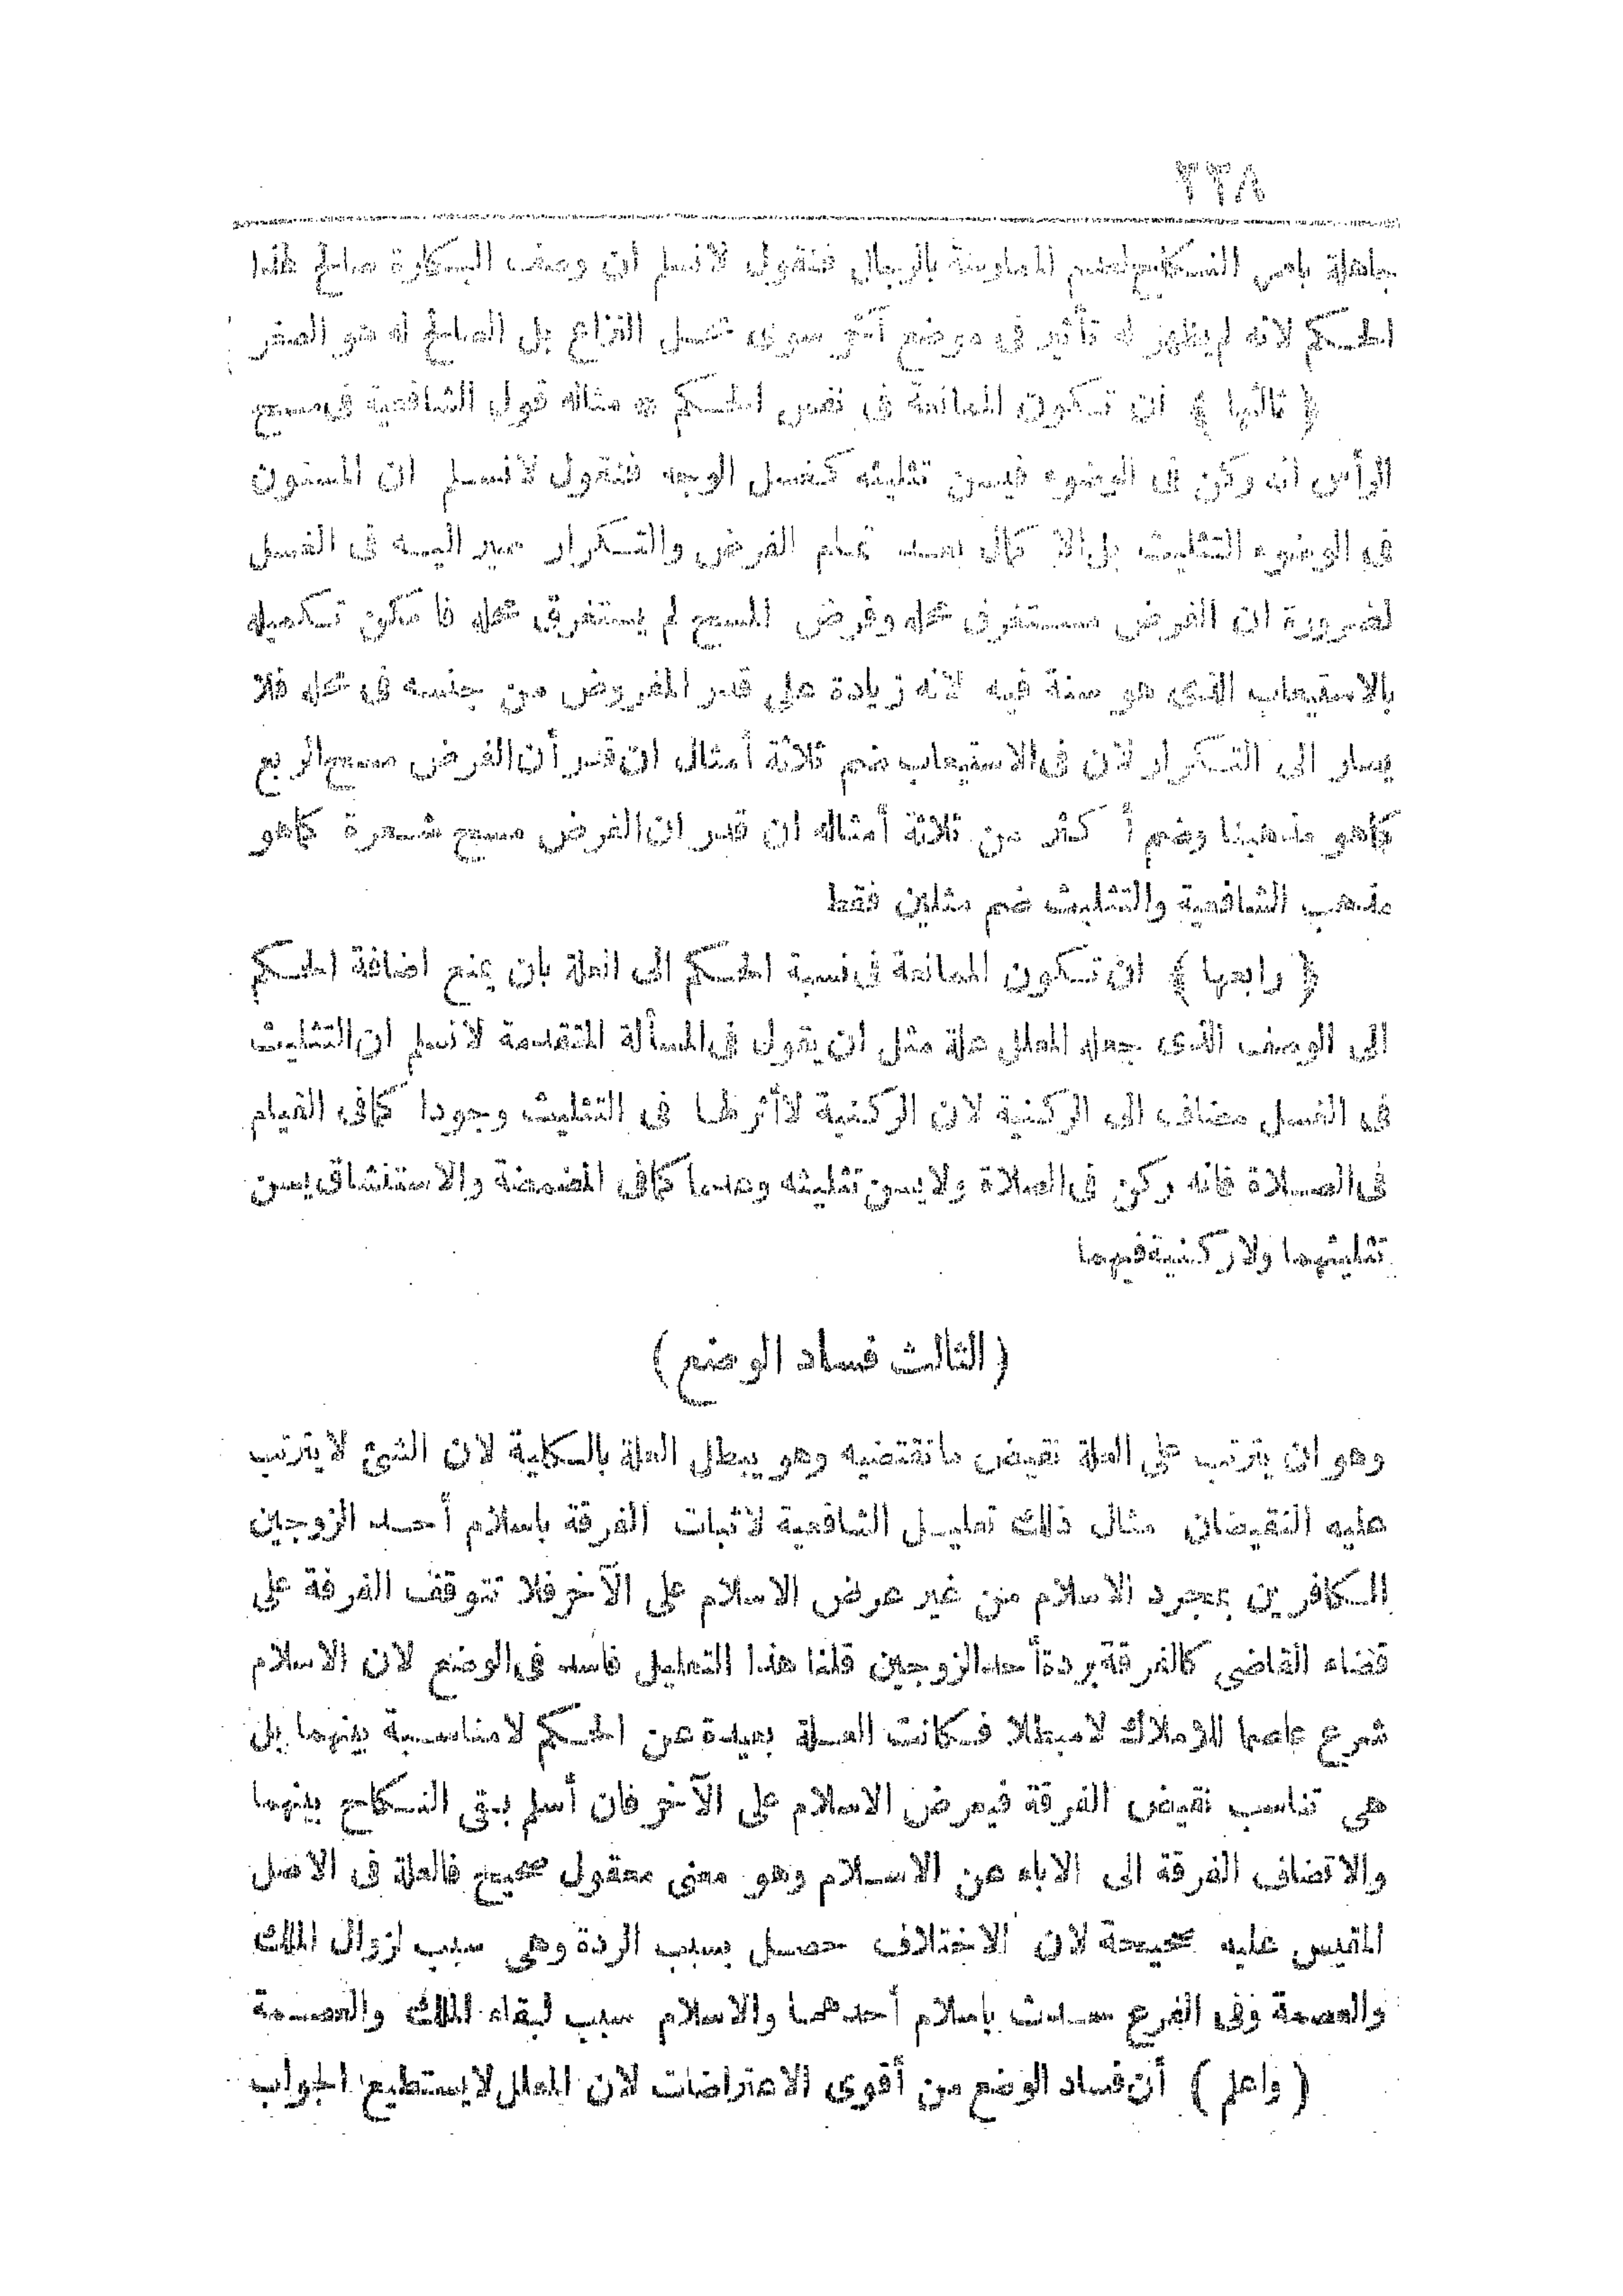 ٢٣٨
جاهلة بامر النكاح لعدم الممارسة بالرجال فنقول لانسلم ان وصف البكارة صالح لهذا
الحكم لانه لم يظهر له تأثير فى موضع آخر سوى محل النزاع بل الصالح له هو الصغر
﴿ ثالثها ﴾ ان تكون الممانعة فى نفس الحكم * مثاله قول الشافعية فى مسح
الرأس انه ركن فى الوضوء فيسن تثليثه كغسل الوجه فنقول لانسلم ان المسنون
فى الوضوء التثليث بل الا كمال بعد تمام الفرض والتكرار صير اليه فى الغسل
لضرورة ان الفرض مستغرق محله وفرض المسح لم يستغرق محله فا مكن تكميله
بالاستيعاب الذى هو سنة فيه لانه زيادة على قدر المفروض من جنسه فى محله فلا
يصار الى التكرار لان فى الاستيعاب ضم ثلاثة أمثال ان قدر أن الفرض مسح الربع
كماهو مذهبنا وضم أ كثر من ثلاثة أمثاله ان قدر ان الفرض مسح شعرة كماهو
مذهب الشافعية والتثليث ضم مثلين فقط
﴿ رابعها ﴾ ان تكون الممانعة فى نسبة الحكم الى العلة بان يمنع اضافة الحكم
الى الوصف الذى جعله المعلل علة مثل ان يقول فى المسألة المتقدمة لانسلم ان التثليث
فى الغسل مضاف الى الركنية لان الركنية لاأثر لها فى التثليث وجودا كمافى القيام
فى الصلاة فانه ركن فى الصلاة ولايسن تثليثه وعدما كمافى المضمضة والاستنشاق يسن
تثليثهما ولاركنية فيهما
( الثالث فساد الوضع )
وهو ان يترتب على العلة نقيض ماتقتضيه وهو يبطل العلة بالكلية لان الشئ لايترتب
عليه النقيضان مثال ذلك تعليل الشافعية لاثبات الفرقة باسلام أحد الزوجين
الكافرين بمجرد الاسلام من غير عرض الاسلام على الآخر فلا تتوقف الفرقة على
قضاء القاضى كالفرقة بردة أحد الزوجين قلنا هذا التعليل فاسد فى الوضع لان الاسلام
شرع عاصما للاملاك لامبطلا فكانت العلة بعيدة عن الحكم لامناسبة بينهما بل
هى تناسب نقيض الفرقة فيعرض الاسلام على الآخر فان أسلم بقى النكاح بينهما
والا تضاف الفرقة الى الاباء عن الاسلام وهو معنى معقول صحيح فالعلة فى الاصل
المقيس عليه صحيحة لان الاختلاف حصل بسبب الردة وهى سبب لزوال الملك
والعصمة وفى الفرع حدث باسلام أحدهما والاسلام سبب لبقاء الملك والعصمة
( واعلم ) أن فساد الوضع من أقوى الاعتراضات لان المعلل لايستطيع الجواب